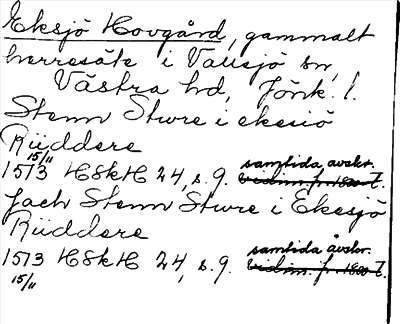 Eksjö Hovgård, gammalt
herresäte i Vallsjö sn,
Västra hd, Jönk. l.
Stenn Sture i eksiö
Rüddere
15/11
1573 HSkH 24, s. 9. samtida avskr.
vidim. fr. 1800 t.
Jach Stenn Sture i Eksjö
Rüddere
1573 HSkH 24, s. 9. samtida avskr.
vidim. fr. 1800 t.
15/11